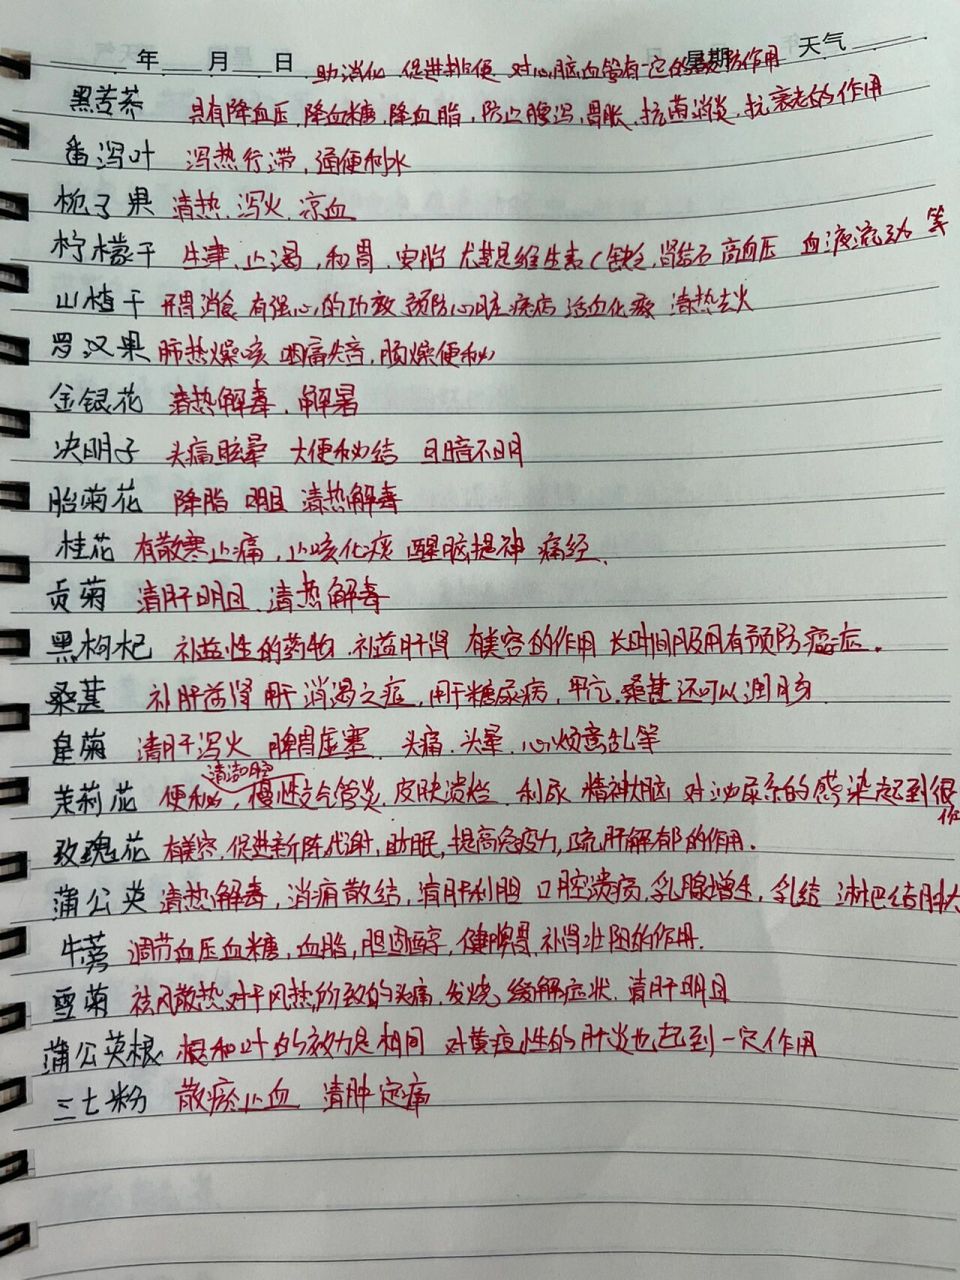 年 月 日 星期 天气
助消化 促进排便 对心脑血管有一定的预防作用
黑苦荞 具有降血压、降血糖、降血脂,防止腹泻、胃胀、抗菌消炎、抗衰老的作用
番泻叶 泻热行滞,通便利水
栀子果 清热、泻火、凉血
柠檬干 生津、止渴,和胃、安胎 尤其是维生素C缺乏,肾结石 高血压 血液流动 等
山楂干 开胃消食 有强心的功效 预防心脏疾病 活血化瘀 清热去火
罗汉果 肺热燥咳 咽痛失音,肠燥便秘
金银花 清热解毒、解暑
决明子 头痛眩晕 大便秘结 目暗不明
胎菊花 降脂 明目 清热解毒
桂花 有散寒止痛,止咳化痰 醒脑提神 痛经、
贡菊 清肝明目、清热解毒
黑枸杞 补益性的药物 补益肝肾 有美容的作用 长时间服用有预防癌症。
桑葚 补肝益肾 用于消渴之症,用于糖尿病,平亢,桑葚还可以润肠
皇菊 清肝泻火 脾胃虚寒 头痛、头晕、心烦意乱等
清洁口腔
茉莉花 便秘,慢性支气管炎、皮肤溃烂、利尿 精神大脑 对泌尿系的感染起到很
作
玫瑰花 有美容,促进新陈代谢,助眠,提高免疫力,疏肝解郁的作用.
蒲公英 清热解毒,消痈散结,清肝利胆 口腔溃疡,乳腺增生,乳结 淋巴结肿大
牛蒡 调节血压血糖,血脂,胆固醇,健脾胃、补肾壮阳的作用.
雪菊 祛风散热,对于风热所致的头痛,发烧,缓解症状,清肝明目
蒲公英根 根和叶的效力是相同 对黄疸性的肝炎也起到一定作用
三七粉 散瘀止血 清肿定痛